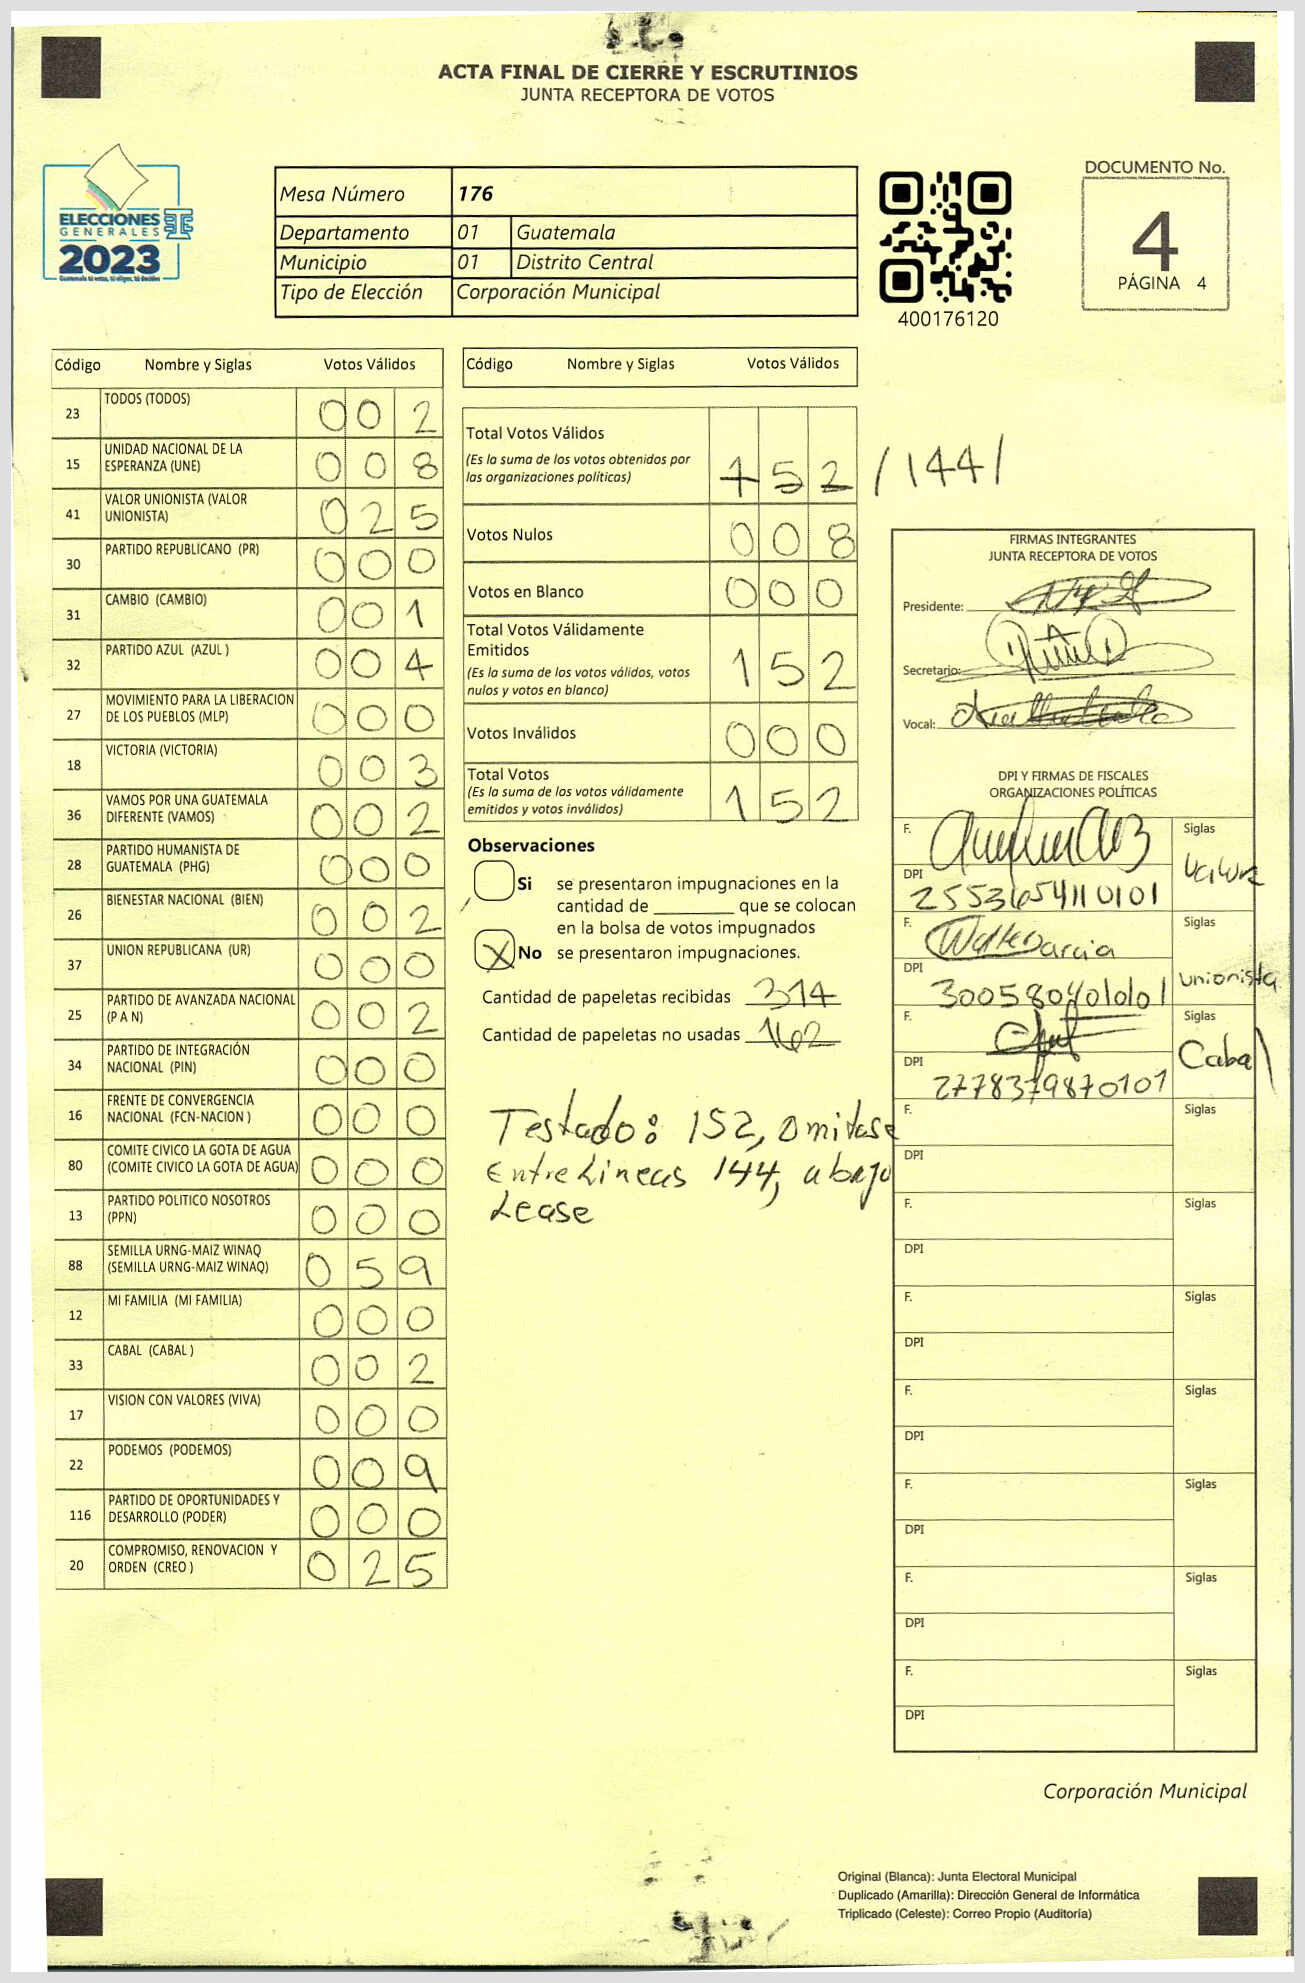 ACTA FINAL DE CIERRE Y ESCRUTINIOS
JUNTA RECEPTORA DE VOTOS
ELECCIONES
GENERALES
2023
Mesa Número 176
Departamento 01 Guatemala
Municipio 01 Distrito Central
Tipo de Elección Corporación Municipal
400176120
DOCUMENTO No.
4
PÁGINA 4
Código Nombre y Siglas Votos Válidos
23 TODOS (TODOS) 0 0 2
15 UNIDAD NACIONAL DE LA
ESPERANZA (UNE) 0 0 8
41 VALOR UNIONISTA (VALOR
UNIONISTA) 0 2 5
30 PARTIDO REPUBLICANO (PR) 0 0 0
31 CAMBIO (CAMBIO) 0 0 1
32 PARTIDO AZUL (AZUL ) 0 0 4
27 MOVIMIENTO PARA LA LIBERACION
DE LOS PUEBLOS (MLP) 0 0 0
18 VICTORIA (VICTORIA) 0 0 3
36 VAMOS POR UNA GUATEMALA
DIFERENTE (VAMOS) 0 0 2
28 PARTIDO HUMANISTA DE
GUATEMALA (PHG) 0 0 0
26 BIENESTAR NACIONAL (BIEN) 0 0 2
37 UNION REPUBLICANA (UR) 0 0 0
25 PARTIDO DE AVANZADA NACIONAL
(P A N) 0 0 2
34 PARTIDO DE INTEGRACIÓN
NACIONAL (PIN) 0 0 0
16 FRENTE DE CONVERGENCIA
NACIONAL (FCN-NACION ) 0 0 0
80 COMITE CIVICO LA GOTA DE AGUA
(COMITE CIVICO LA GOTA DE AGUA) 0 0 0
13 PARTIDO POLITICO NOSOTROS
(PPN) 0 0 0
88 SEMILLA URNG-MAIZ WINAQ
(SEMILLA URNG-MAIZ WINAQ) 0 5 9
12 MI FAMILIA (MI FAMILIA) 0 0 0
33 CABAL (CABAL ) 0 0 2
17 VISION CON VALORES (VIVA) 0 0 0
22 PODEMOS (PODEMOS) 0 0 9
116 PARTIDO DE OPORTUNIDADES Y
DESARROLLO (PODER) 0 0 0
20 COMPROMISO, RENOVACION Y
ORDEN (CREO ) 0 2 5
Código Nombre y Siglas Votos Válidos
Total Votos Válidos
(Es la suma de los votos obtenidos por
las organizaciones políticas) 1 5 2 /144/
Votos Nulos 0 0 8
Votos en Blanco 0 0 0
Total Votos Válidamente
Emitidos
(Es la suma de los votos válidos, votos
nulos y votos en blanco) 1 5 2
Votos Inválidos 0 0 0
Total Votos
(Es la suma de los votos válidamente
emitidos y votos inválidos) 1 5 2
Observaciones
Si se presentaron impugnaciones en la
cantidad de ________ que se colocan
en la bolsa de votos impugnados
X No se presentaron impugnaciones.
Cantidad de papeletas recibidas 314
Cantidad de papeletas no usadas 162
Testado: 152, Omitase
Entre Lineas 144, abajo
Lease
FIRMAS INTEGRANTES
JUNTA RECEPTORA DE VOTOS
Presidente:
Secretario:
Vocal:
DPI Y FIRMAS DE FISCALES
ORGANIZACIONES POLÍTICAS
F. Siglas
DPI
F. Siglas
Unionista
DPI 3005804010101
F. Siglas
Cabal
DPI 2778379870101
F. Siglas
DPI
F. Siglas
DPI
F. Siglas
DPI
F. Siglas
DPI
F. Siglas
DPI
F. Siglas
DPI
F. Siglas
DPI
Corporación Municipal
Original (Blanca): Junta Electoral Municipal
Duplicado (Amarilla): Dirección General de Informática
Triplicado (Celeste): Correo Propio (Auditoría)